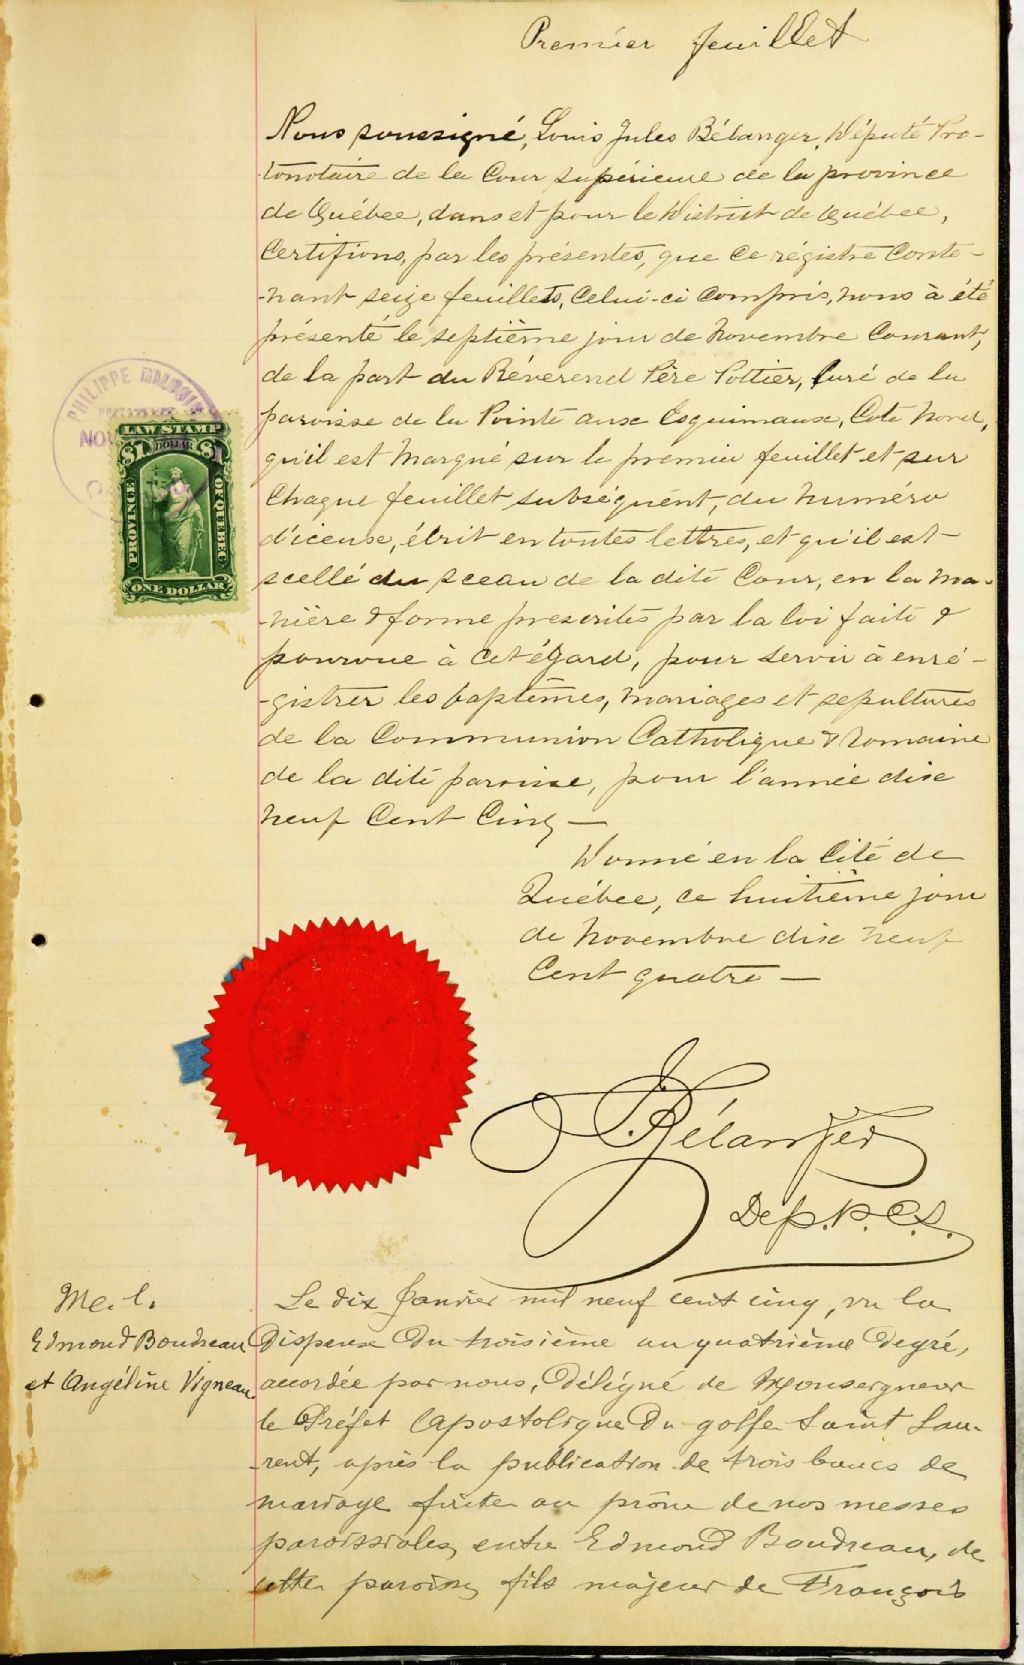 Premier feuillet
Nous soussigné, Louis Jules Bélanger, Député Pro-
tonotaire de la Cour supérieure de la province
de Québec, dans et pour le District de Québec,
Certifions, par les présentes, que ce régistre Conte-
-nant seize feuillets, Celui-ci Compris, nous à été
présenté le septième jour de Novembre Courant,
de la part du Révérend Père Pottier, Curé de la
paroisse de la Pointe aux Esquimaux, Cote Nord,
qu'il est Marqué sur le premier feuillet et sur
Chaque feuillet subséquent, du Numéro
d'iceux, écrit en toutes lettres, et qu'il est
scellé du sceau de la dite Cour, en la Ma-
-nière & forme prescrites par la loi faite &
pourvue à Cet égard, pour servir à enré-
-gistrer les baptêmes, Mariages et sepultures
de la Communion Catholique & Romaine
de la dite paroisse, pour l'année dix
Neuf Cent Cinq —
Donné en la Cité de
Québec, ce huitième jour
de Novembre dix neuf
Cent quatre —
Bélanger
Dep. P. C. S.
PHILIPPE MALOUIN
NOV
LAW STAMP
$1 DOLLAR $1
PROVINCE
OF QUEBEC
ONE DOLLAR
M. 1.
Edmond Boudreau
et Angéline Vigneau
Le dix Janvier mil neuf cent cinq, vu la
Dispense Du troisième au quatrième Degré,
accordée par nous, Délégué de Monseigneur
le Préfet Apostolique Du golfe Saint Lau-
-rent, après la publication de trois bancs de
mariage faite au prône de nos messes
paroissiales, entre Edmond Boudreau, de
cette paroisse, fils majeur de François